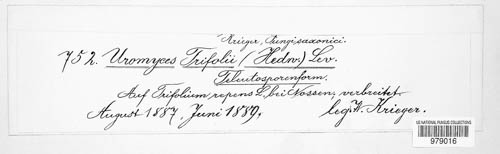 Krieger, Fungi saxonici.
752. Uromyces Trifolii (Hedw.) Lev.
Teleutosporenform.
Auf Trifolium repens L. bei Nossen, verbreitet
August 1887, Juni 1889, leg. W. Krieger.
US NATIONAL FUNGUS COLLECTIONS
979016